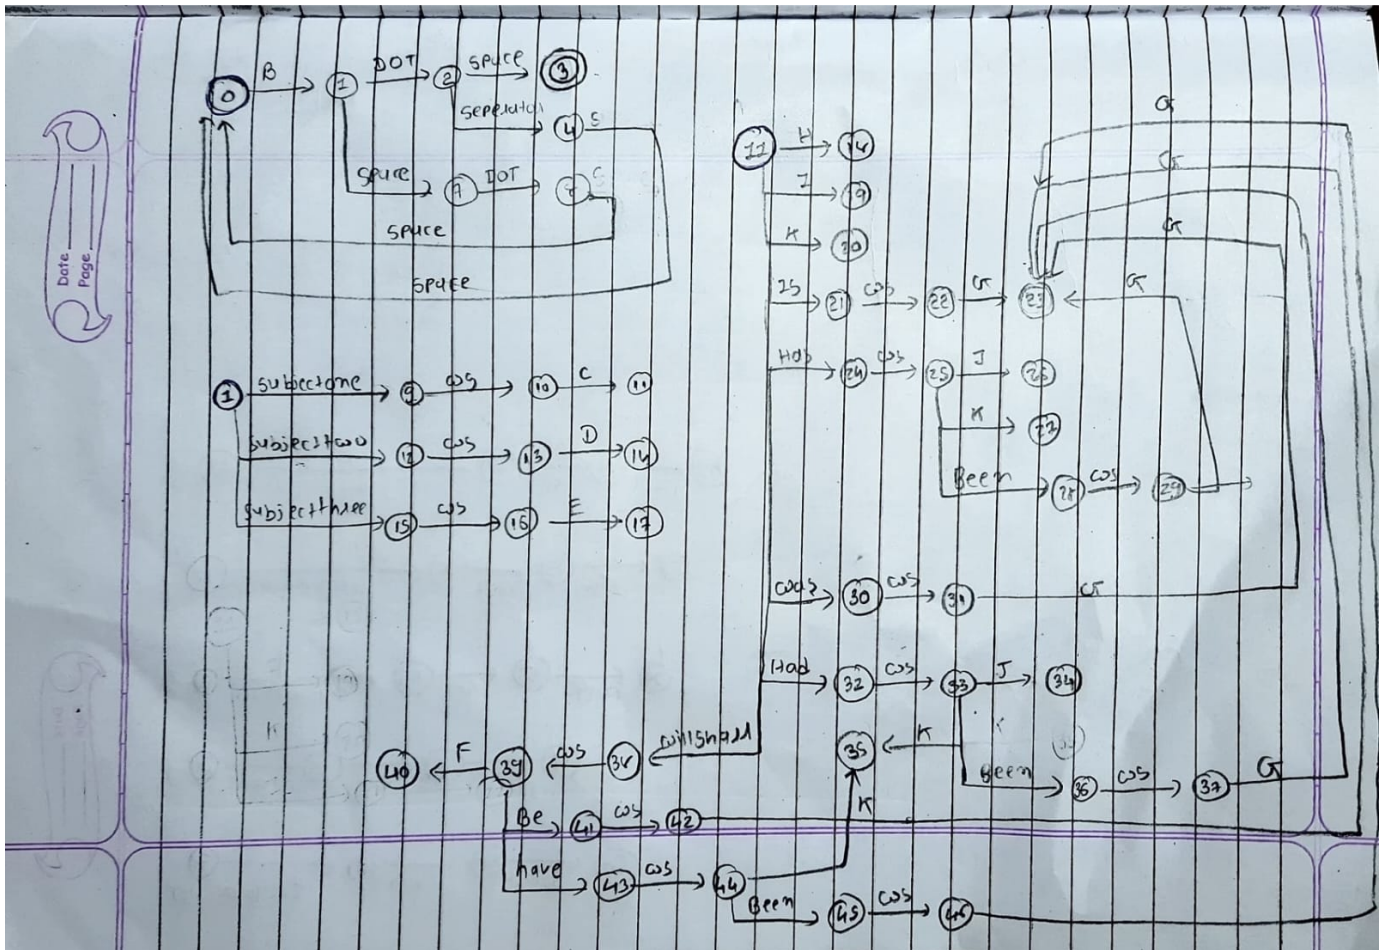 0 B 1 DOT 2 Space 3
Seperator 4 S
Space 7 DOT 8 S
Space
Space
Date
Page
1 subjectone 9 ws 10 C 11
subjecttwo 12 ws 13 D 14
subjectthree 15 ws 16 E 17
11 H
I 19
K 20
IS 21 ws 22 G 23 G
G
G
G
Has 24 ws 25 J 26
K 27
Been 28 ws 29
was 30 ws 31 G
Had 32 ws 33 J 34
K 35
Been 36 ws 37 G
willshall 38 ws 39 F 40
Be 41 ws 42
have 43 ws 44 K
Been 45 ws 46